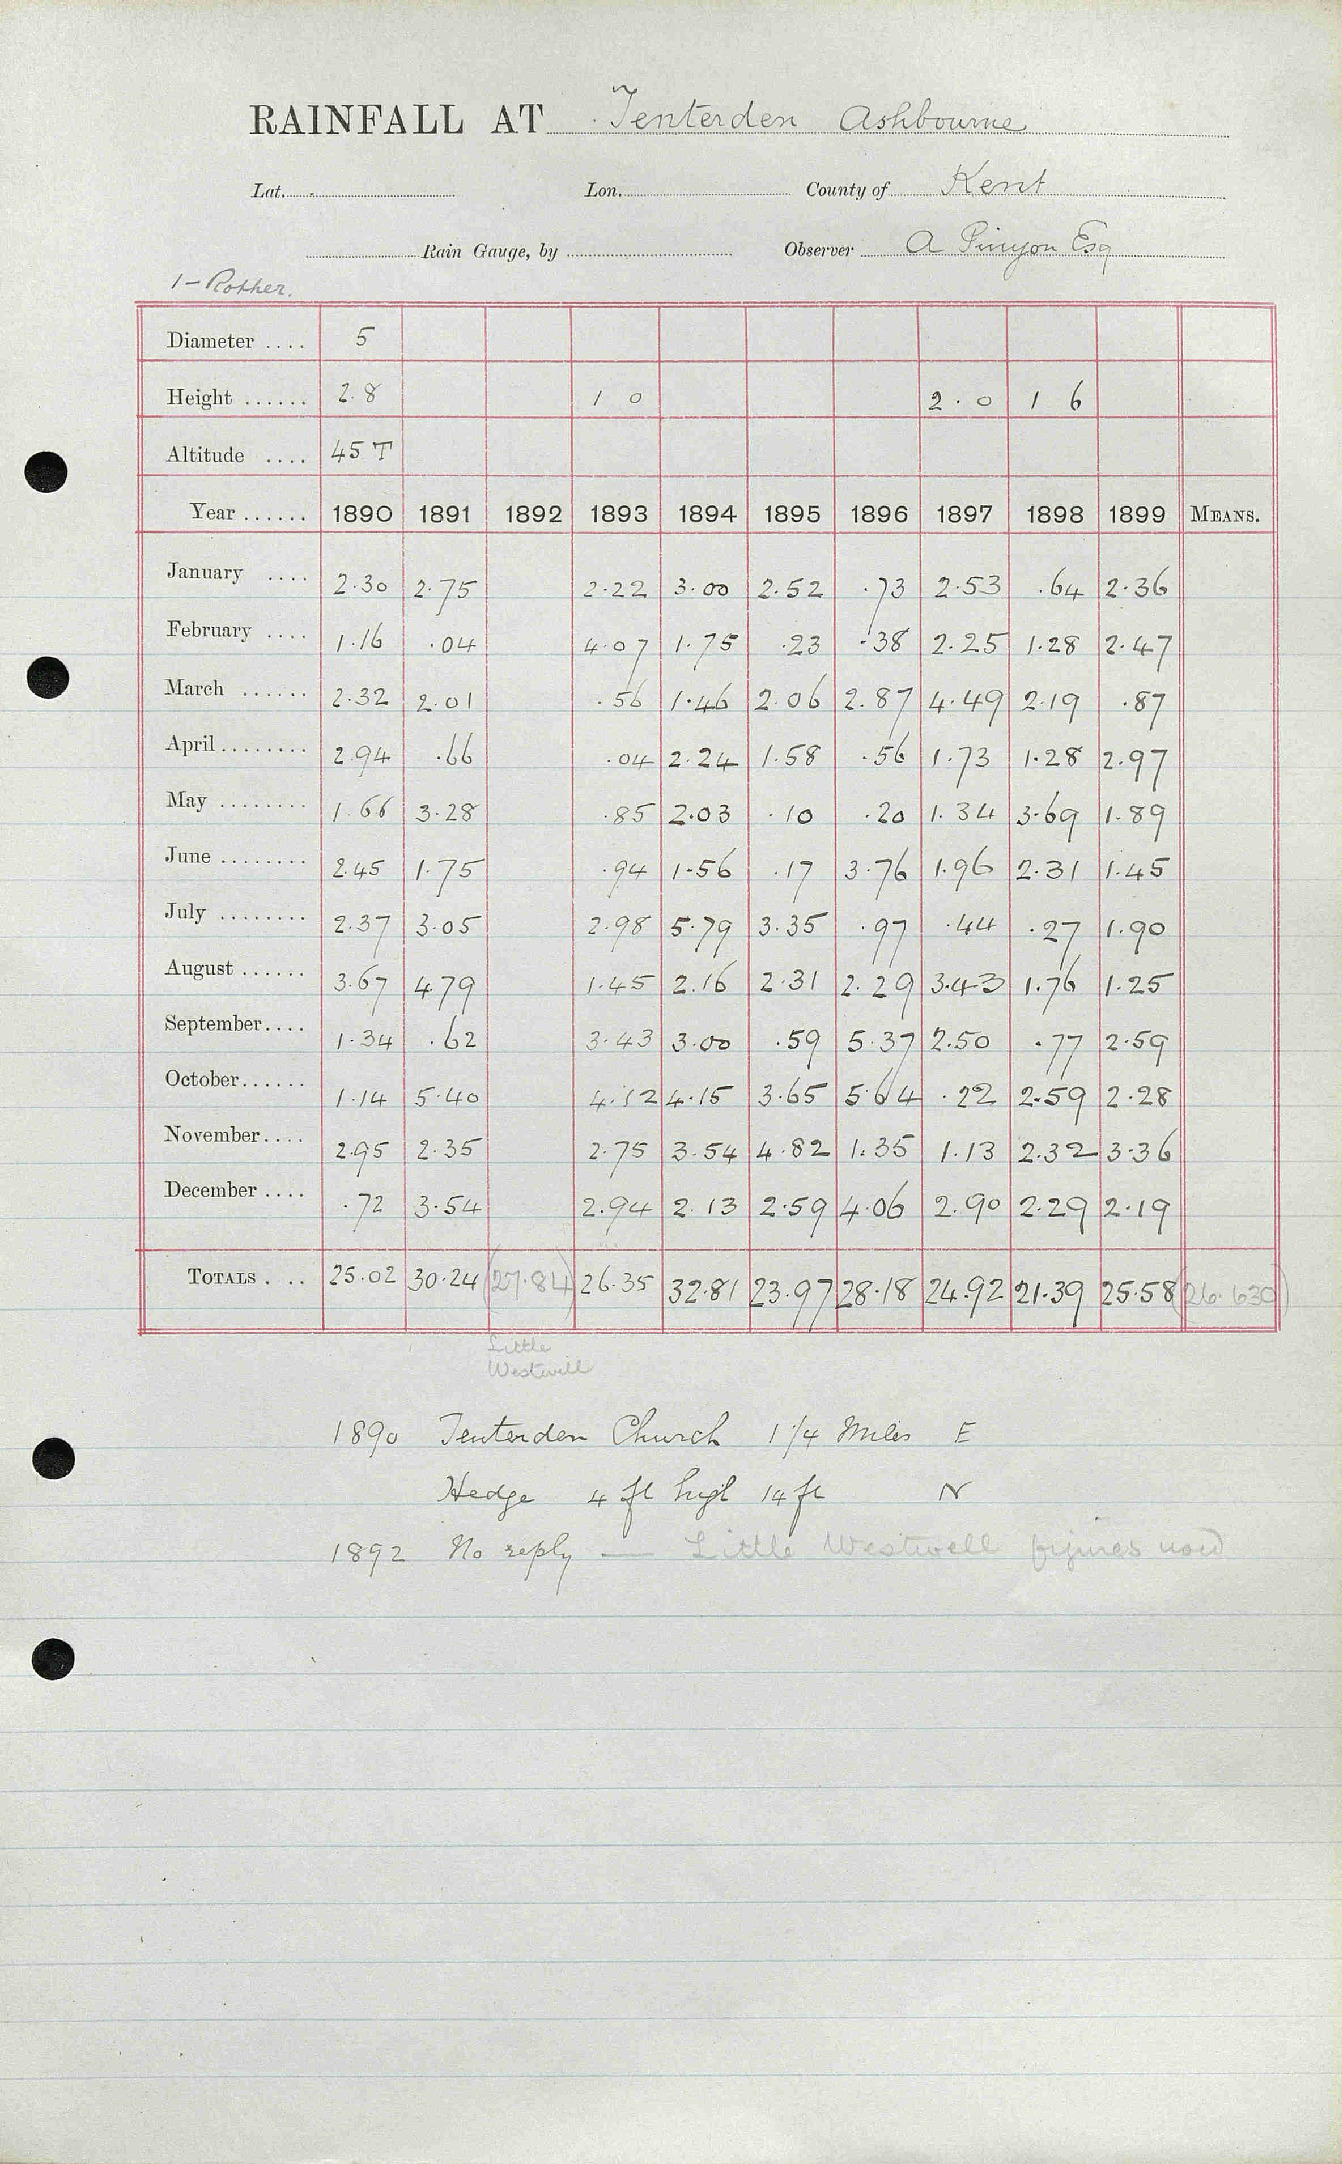 RAINFALL AT Tenterden Ashbourne
Lat. Lon. County of Kent
Rain Gauge, by Observer A Pinyon Esq
1 - Rother.
Diameter .... 5
Height ...... 2.8 1 0 2.0 1 6
Altitude .... 45 T
Year ...... 1890 1891 1892 1893 1894 1895 1896 1897 1898 1899 MEANS.
January .... 2.30 2.75 2.22 3.00 2.52 .73 2.53 .64 2.36
February .... 1.16 .04 4.07 1.75 .23 .38 2.25 1.28 2.47
March ...... 2.32 2.01 .56 1.46 2.06 2.87 4.49 2.19 .87
April ........ 2.94 .66 .04 2.24 1.58 .56 1.73 1.28 2.97
May ........ 1.66 3.28 .85 2.03 .10 .20 1.34 3.69 1.89
June ........ 2.45 1.75 .94 1.56 .17 3.76 1.96 2.31 1.45
July ........ 2.37 3.05 2.98 5.79 3.35 .97 .44 .27 1.90
August ...... 3.67 4.79 1.45 2.16 2.31 2.29 3.43 1.76 1.25
September.... 1.34 .62 3.43 3.00 .59 5.37 2.50 .77 2.59
October...... 1.14 5.40 4.12 4.15 3.65 5.64 .22 2.59 2.28
November.... 2.95 2.35 2.75 3.54 4.82 1.35 1.13 2.32 3.36
December .... .72 3.54 2.94 2.13 2.59 4.06 2.90 2.29 2.19
TOTALS . .. 25.02 30.24 (27.84) 26.35 32.81 23.97 28.18 24.92 21.39 25.58 (26.630)
Little
Westwell
1890 Tenterden Church 1 1/4 Miles E
Hedge 4 ft high 14 ft N
1892 No reply — Little Westwell figures used